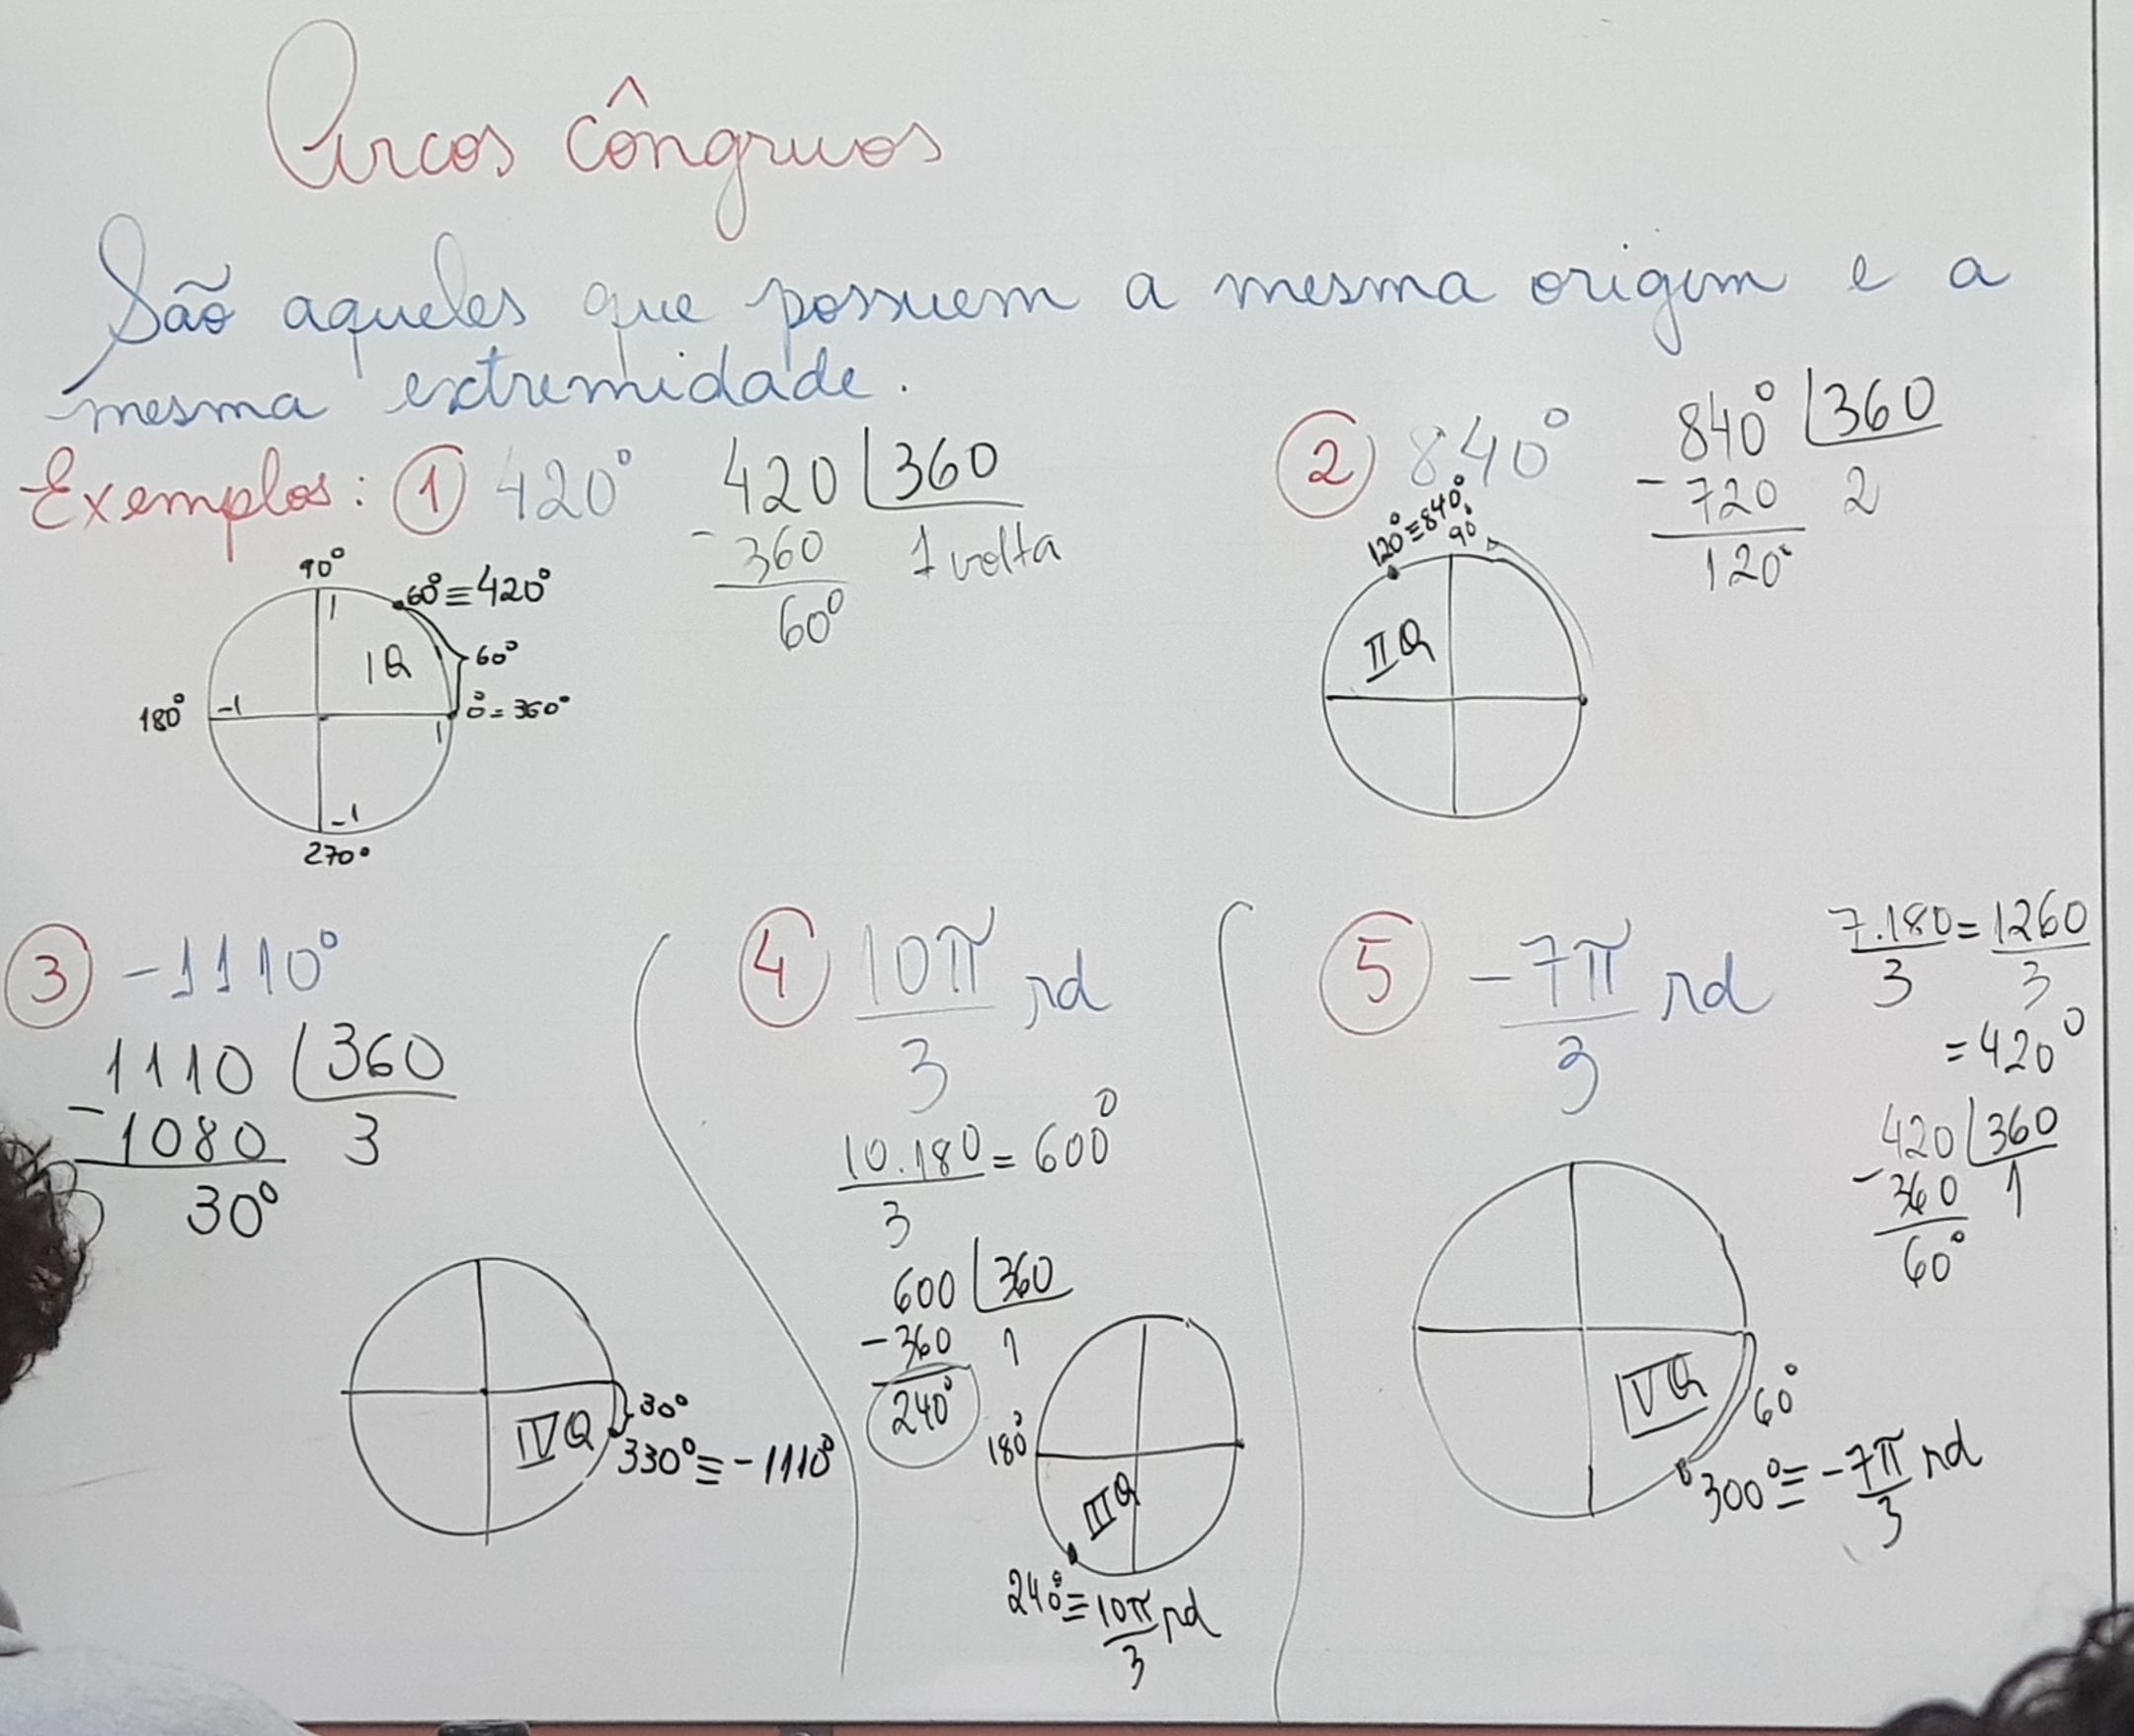 Arcos côngruos
São aqueles que possuem a mesma origem e a
mesma extremidade.
Exemplos: ① 420°
420 | 360
- 360 1 volta
60°
90°
1
60° ≡ 420°
IQ
60°
180°
-1
0° = 360°
1
-1
270°
② 840°
840° | 360
- 720 2
120°
120° ≡ 840°
90°
IIQ
③ -1110°
1110 | 360
- 1080 3
30°
30°
IVQ
330° ≡ -1110°
④ 10π/3 rd
10.180/3 = 600°
600 | 360
- 360 1
240°
180°
IIIQ
240° ≡ 10π/3 rd
⑤ -7π/3 rd
7.180/3 = 1260/3
= 420°
420 | 360
- 360 1
60°
IVQ
60°
300° ≡ -7π/3 rd